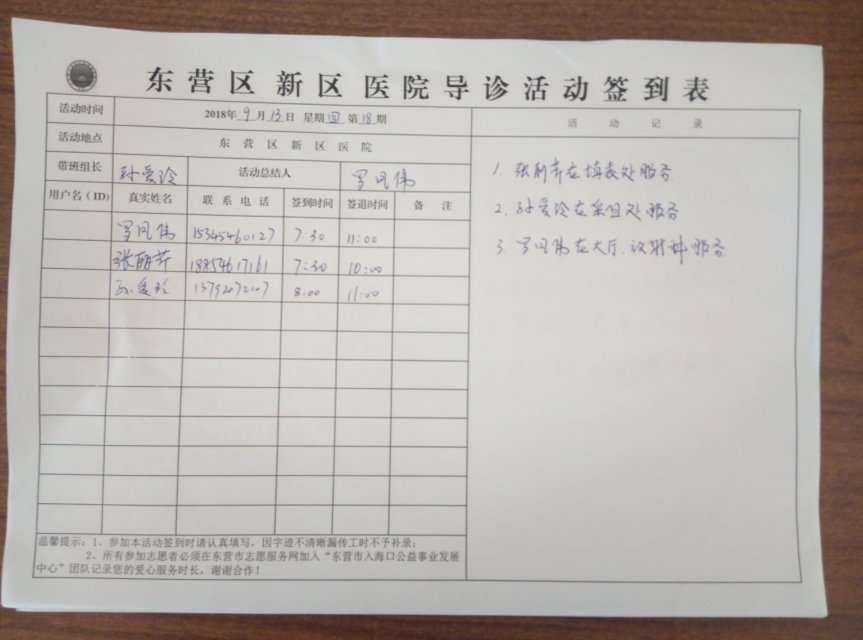 东营区新区医院导诊活动签到表
活动时间 2018年9月13日 星期四 第18期
活动地点 东营区新区医院
带班组长 孙爱玲 活动总结人 罗凤伟
用户名(ID) 真实姓名 联系电话 签到时间 签退时间 备注
罗凤伟 15345460127 7:30 11:00
张丽芹 18854617161 7:30 10:00
孙爱玲 13792072107 8:00 11:00
温馨提示:1、参加本活动签到时请认真填写,因字迹不清晰漏传工时不予补录;
2、所有参加志愿者必须在东营市志愿服务网加入“东营市入海口公益事业发展
中心”团队记录您的爱心服务时长,谢谢合作!
活动记录
1. 张丽芹在填表处服务
2. 孙爱玲在采血处服务
3. 罗凤伟在大厅、服务